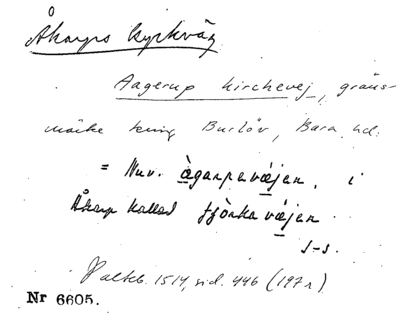 Åkarps kyrkväg
Aagerup Kirchevej, gräns-
märke kring Burlöv, Bara hd.
= Nuv. àgarpavæjen, i
Åkarp kallad
J-s.
Paltkb. 1514, sid. 446 (197 r)
Nr 6605.